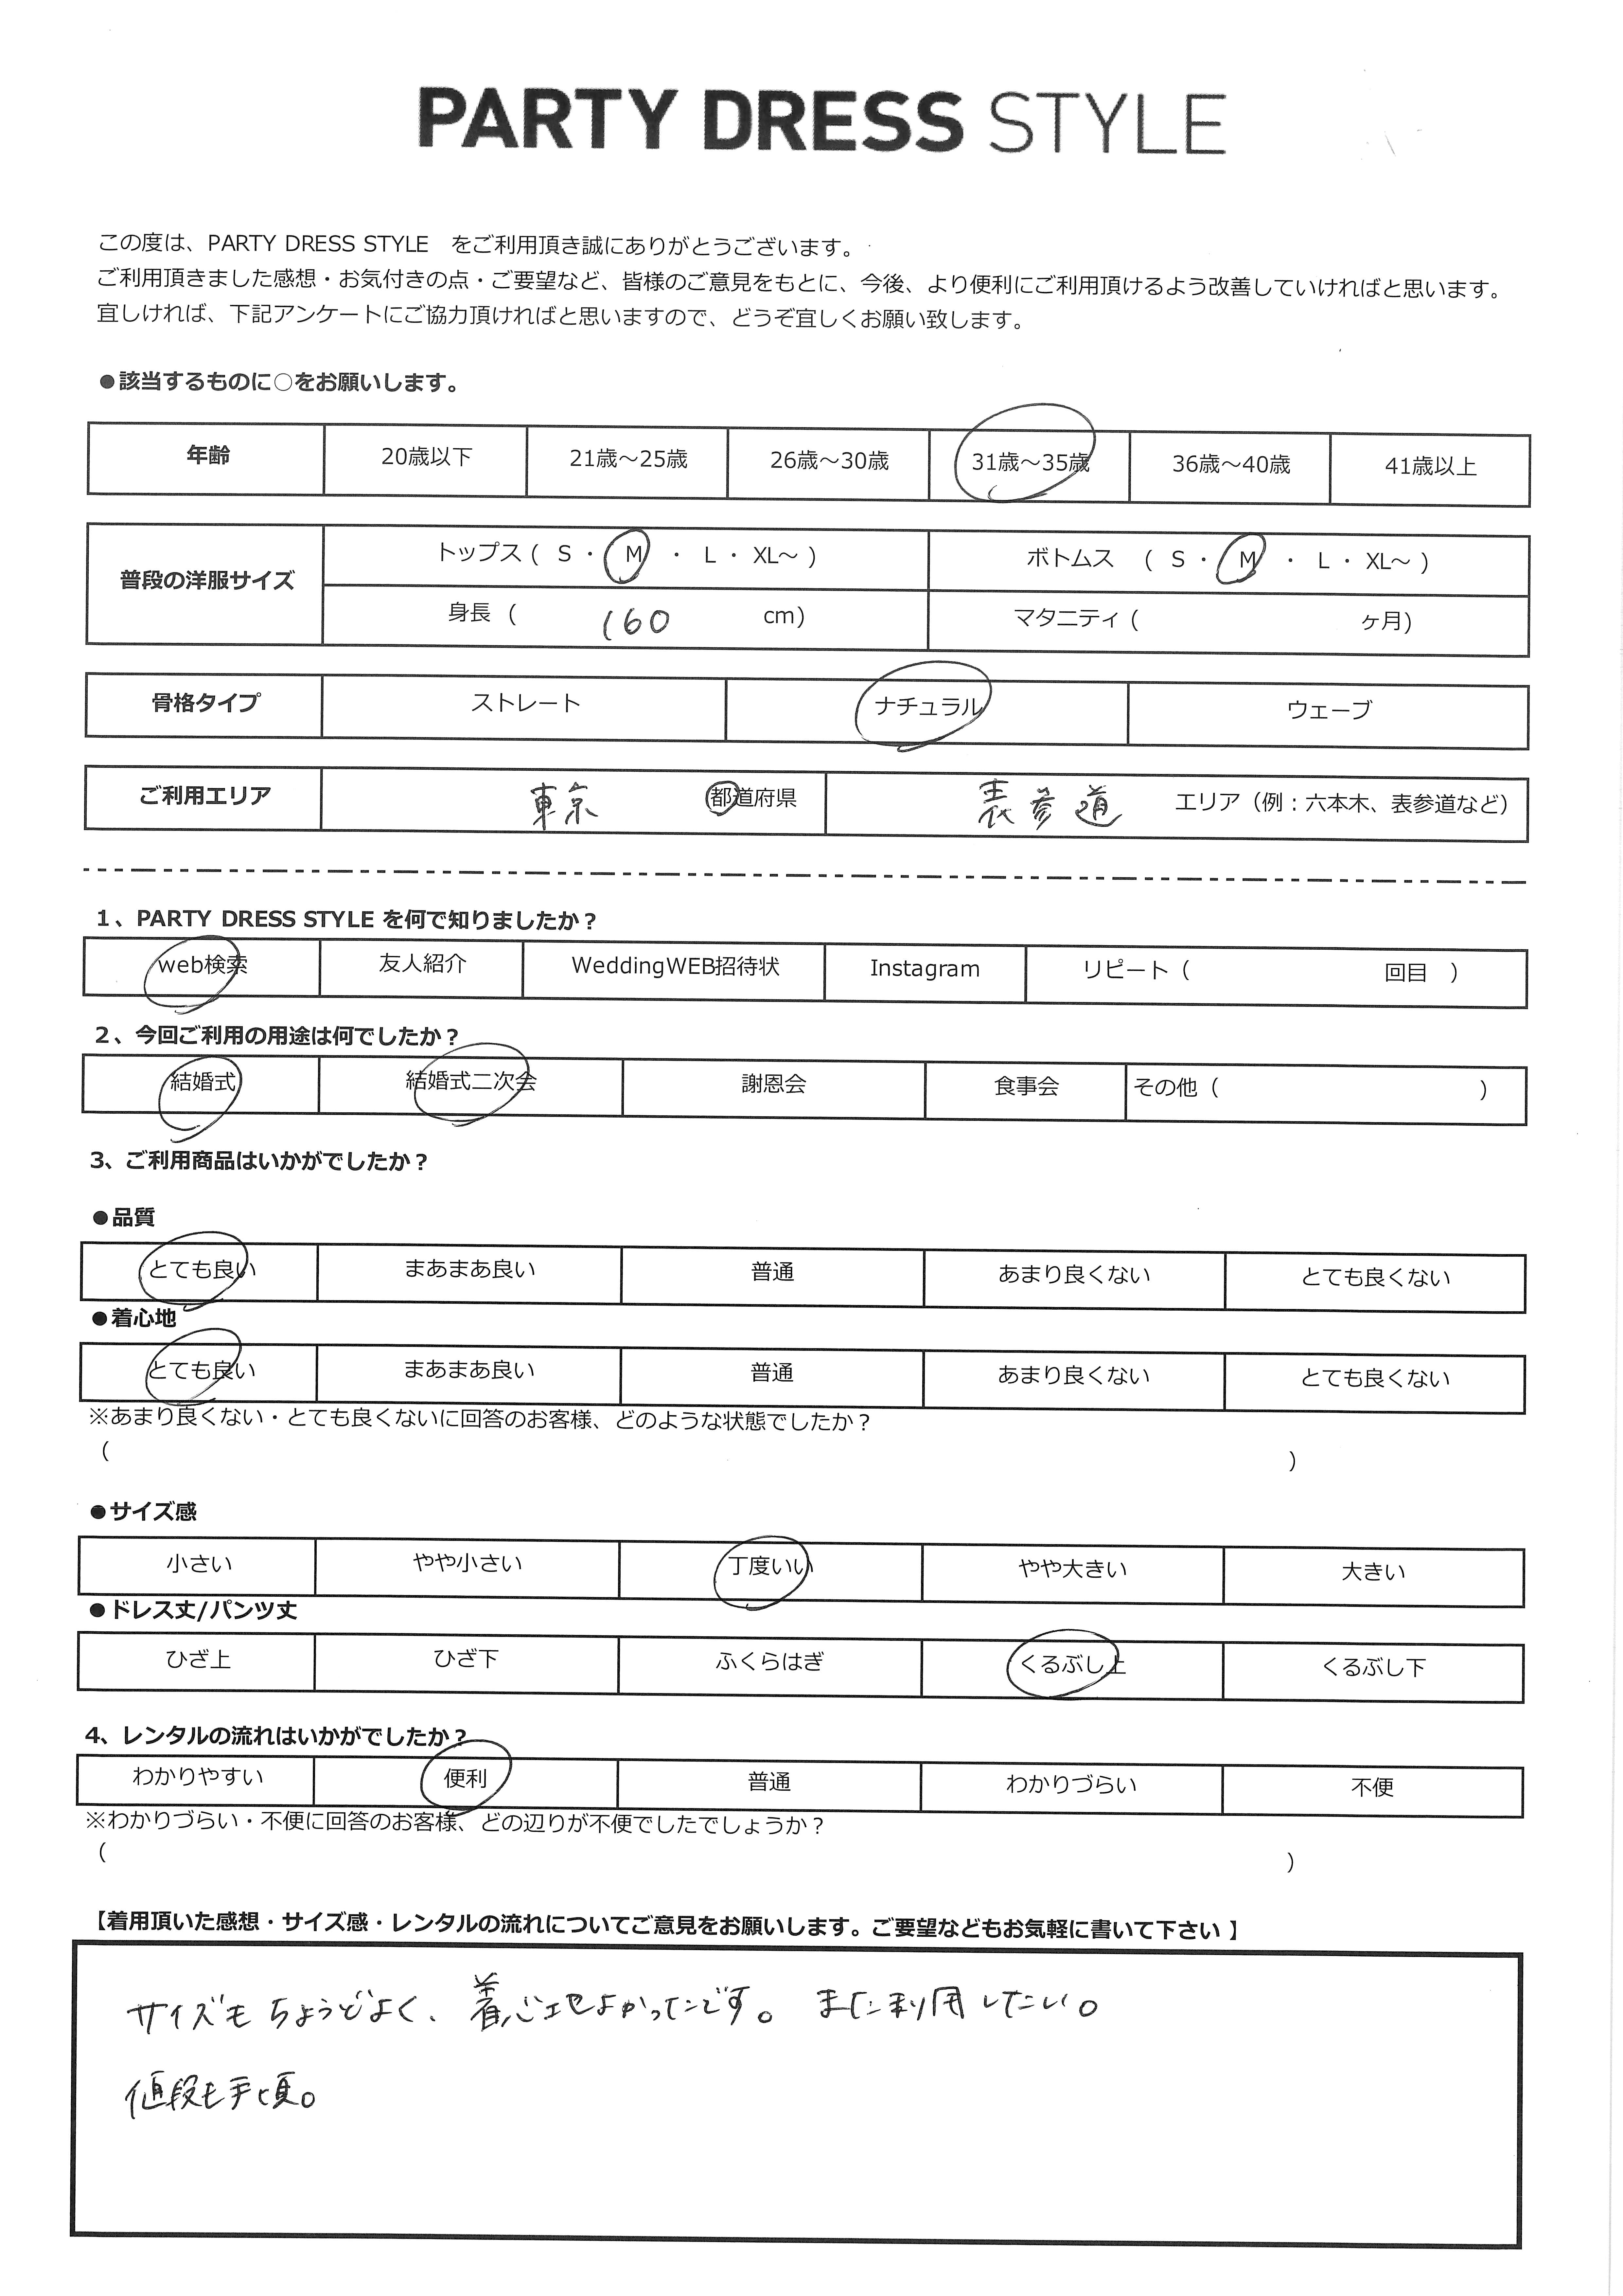 PARTY DRESS STYLE
この度は、PARTY DRESS STYLE をご利用頂き誠にありがとうございます。
ご利用頂きました感想・お気付きの点・ご要望など、皆様のご意見をもとに、今後、より便利にご利用頂けるよう改善していければと思います。
宜しければ、下記アンケートにご協力頂ければと思いますので、どうぞ宜しくお願い致します。
●該当するものに○をお願いします。
年齢 20歳以下 21歳～25歳 26歳～30歳 31歳～35歳 36歳～40歳 41歳以上
普段の洋服サイズ トップス ( S ・ M ・ L ・ XL～ ) ボトムス ( S ・ M ・ L ・ XL～ )
身長 ( 160 cm) マタニティ ( ヶ月)
骨格タイプ ストレート ナチュラル ウェーブ
ご利用エリア 東京 都道府県 表参道 エリア（例：六本木、表参道など）
1、PARTY DRESS STYLE を何で知りましたか？
web検索 友人紹介 WeddingWEB招待状 Instagram リピート（ 回目 ）
2、今回ご利用の用途は何でしたか？
結婚式 結婚式二次会 謝恩会 食事会 その他（ ）
3、ご利用商品はいかがでしたか？
●品質
とても良い まあまあ良い 普通 あまり良くない とても良くない
●着心地
とても良い まあまあ良い 普通 あまり良くない とても良くない
※あまり良くない・とても良くないに回答のお客様、どのような状態でしたか？
（ ）
●サイズ感
小さい やや小さい 丁度いい やや大きい 大きい
●ドレス丈/パンツ丈
ひざ上 ひざ下 ふくらはぎ くるぶし上 くるぶし下
4、レンタルの流れはいかがでしたか？
わかりやすい 便利 普通 わかりづらい 不便
※わかりづらい・不便に回答のお客様、どの辺りが不便でしたでしょうか？
（ ）
【着用頂いた感想・サイズ感・レンタルの流れについてご意見をお願いします。ご要望などもお気軽に書いて下さい】
サイズもちょうどよく、着心地よかったです。また利用したい。
値段も手頃。